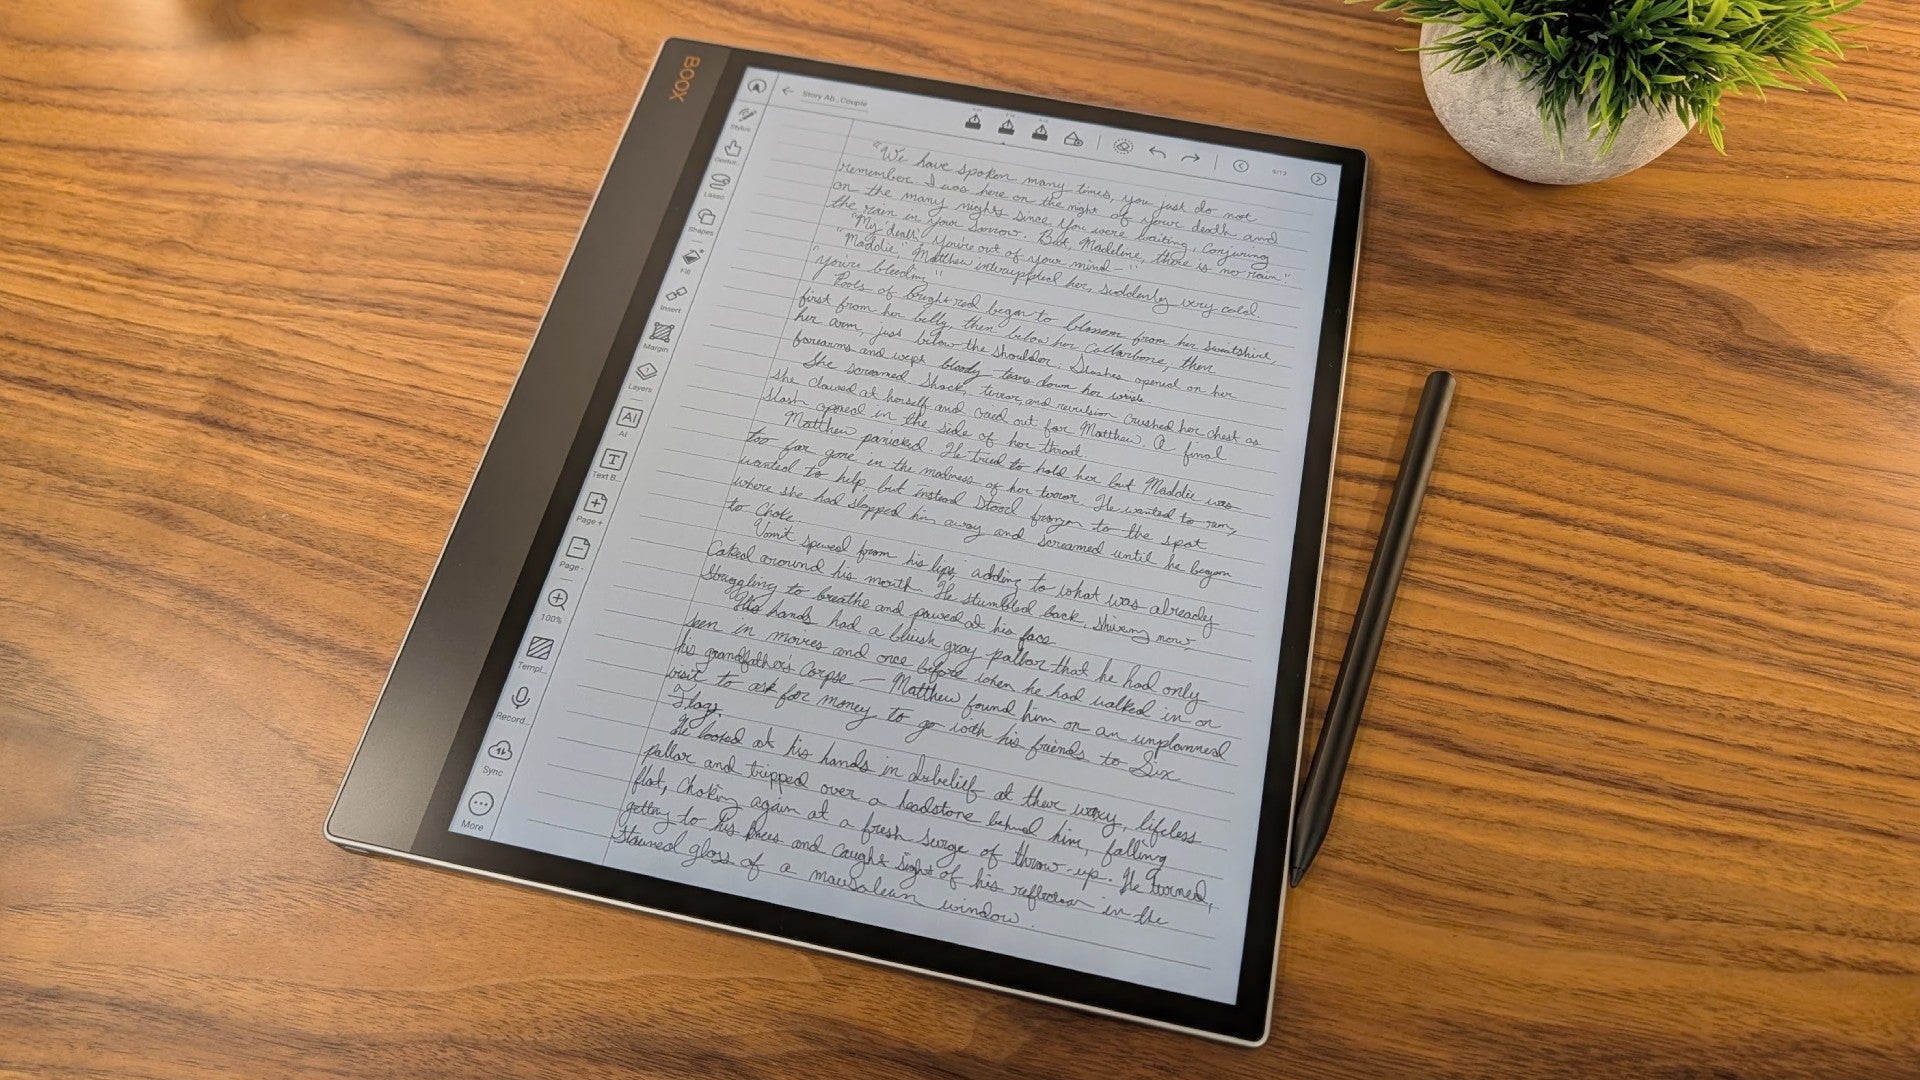 BOOX
Story Ab_Couple
Stylus
Gestur..
Lasso
Shapes
Fill
Insert
Margin
Layers
AI
AI
T
Text B..
Page +
Page -
100%
Templ..
Record..
Sync
More
"We have spoken many times, you just do not
remember. I was here on the night of your death and
on the many nights since. You were waiting, conjuring
the rain in your sorrow. But, Madeline, there is no rain."
"My death? You're out of your mind—"
"Maddie," Matthew interrupted her, suddenly very cold.
"you're bleeding"
Pools of bright red began to blossom from her sweatshirt,
first from her belly, then below her collarbone, then
her arm, just below the shoulder. Slashes opened on her
forearms and wept bloody tears down her wrists.
She screamed. Shock, terror, and revulsion crushed her chest as
she clawed at herself and cried out for Matthew. A final
slash opened in the side of her throat.
Matthew panicked. He tried to hold her but Maddie was
too far gone in the madness of her terror. He wanted to run,
wanted to help, but instead stood frozen to the spot
where she had slapped him away and screamed until he began
to choke.
Vomit spewed from his lips, adding to what was already
caked around his mouth. He stumbled back, shivering now,
struggling to breathe and pawed at his face.
His hands had a bluish gray pallor that he had only
seen in movies and once before when he had walked in on
his grandfather's corpse — Matthew found him on an unplanned
visit to ask for money to go with his friends to Six
Flags.
He looked at his hands in disbelief at their waxy, lifeless
pallor and tripped over a headstone behind him, falling
flat, choking again at a fresh surge of throw-up. He turned,
getting to his knees and caught sight of his reflection in the
stained glass of a mausoleum window.